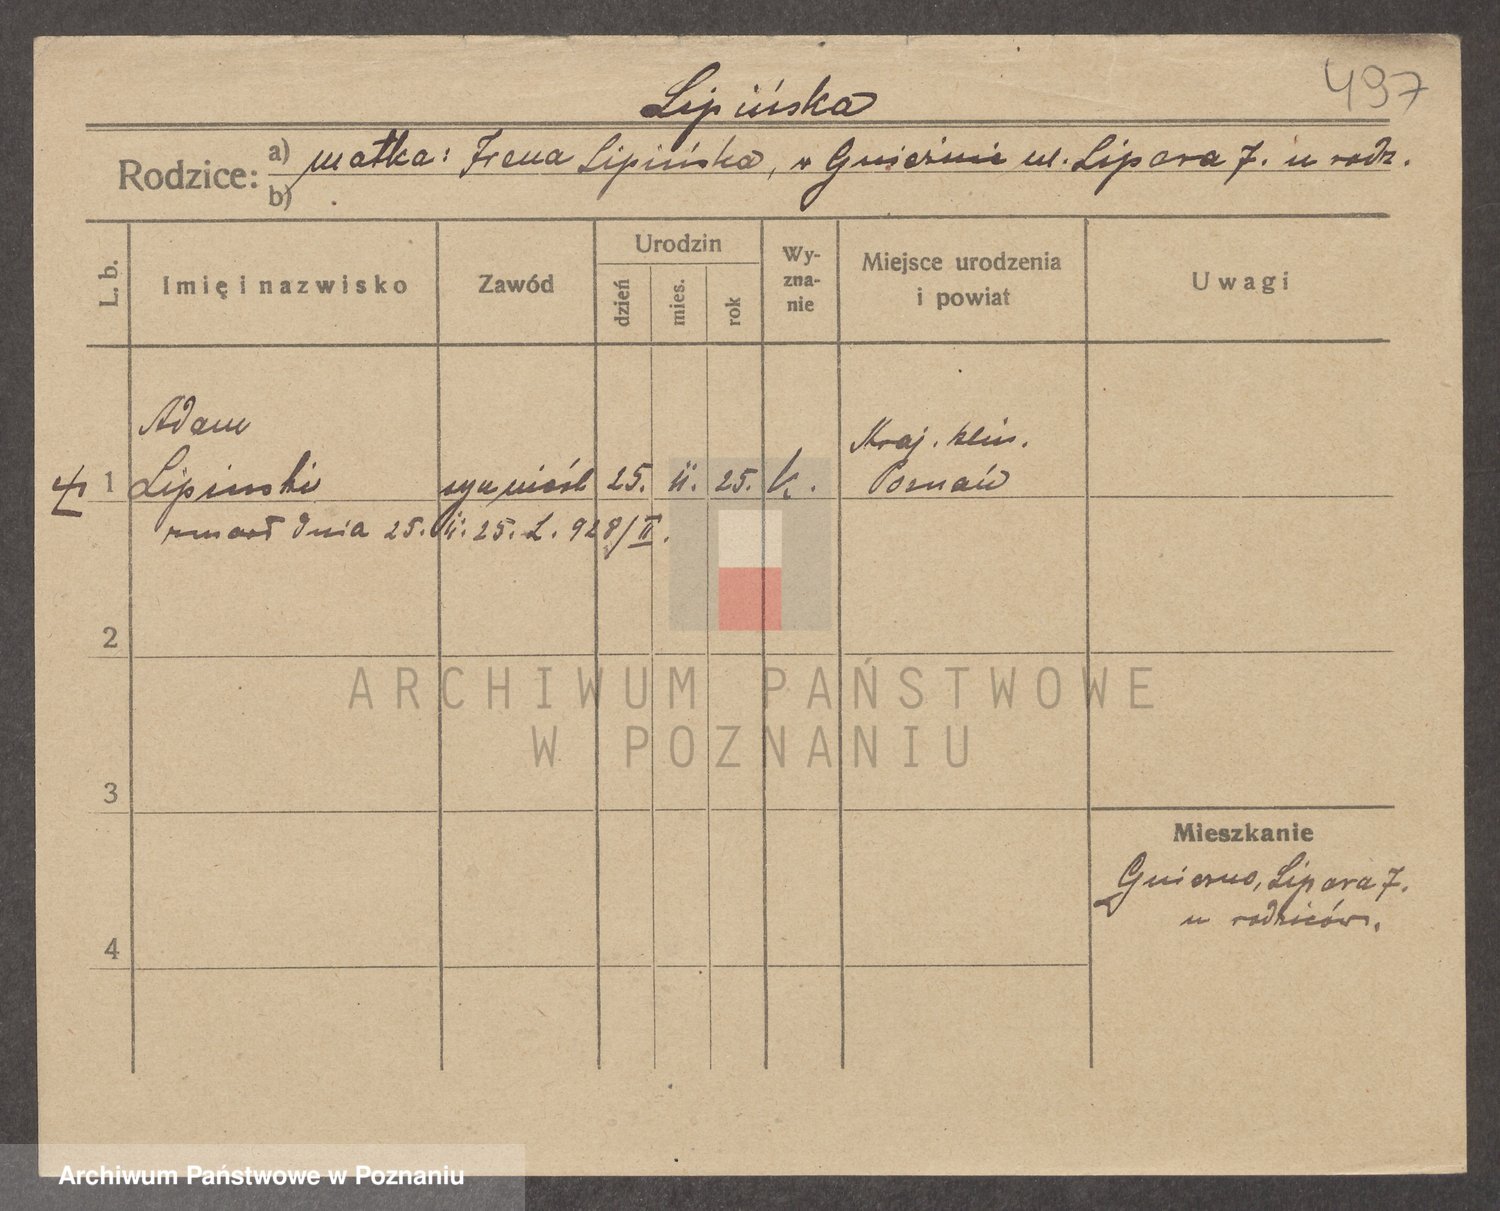 497
Lipińska
Rodzice: a) matka: Irena Lipińska, w Gnieźnie ul. Lipowa 7. u rodz.
b)
L. b.
Imię i nazwisko
Zawód
Urodzin
dzień
mies.
rok
Wy-
zna-
nie
Miejsce urodzenia
i powiat
Uwagi
Adam
1 Lipinski syn nieśl 25. ii. 25. k.
Kraj. klin.
Poznań
zmarł dnia 25. ii. 25. L. 928/II.
2
3
4
Mieszkanie
Gniezno, Lipowa 7.
u rodziców.
ARCHIWUM PAŃSTWOWE
W POZNANIU
Archiwum Państwowe w Poznaniu